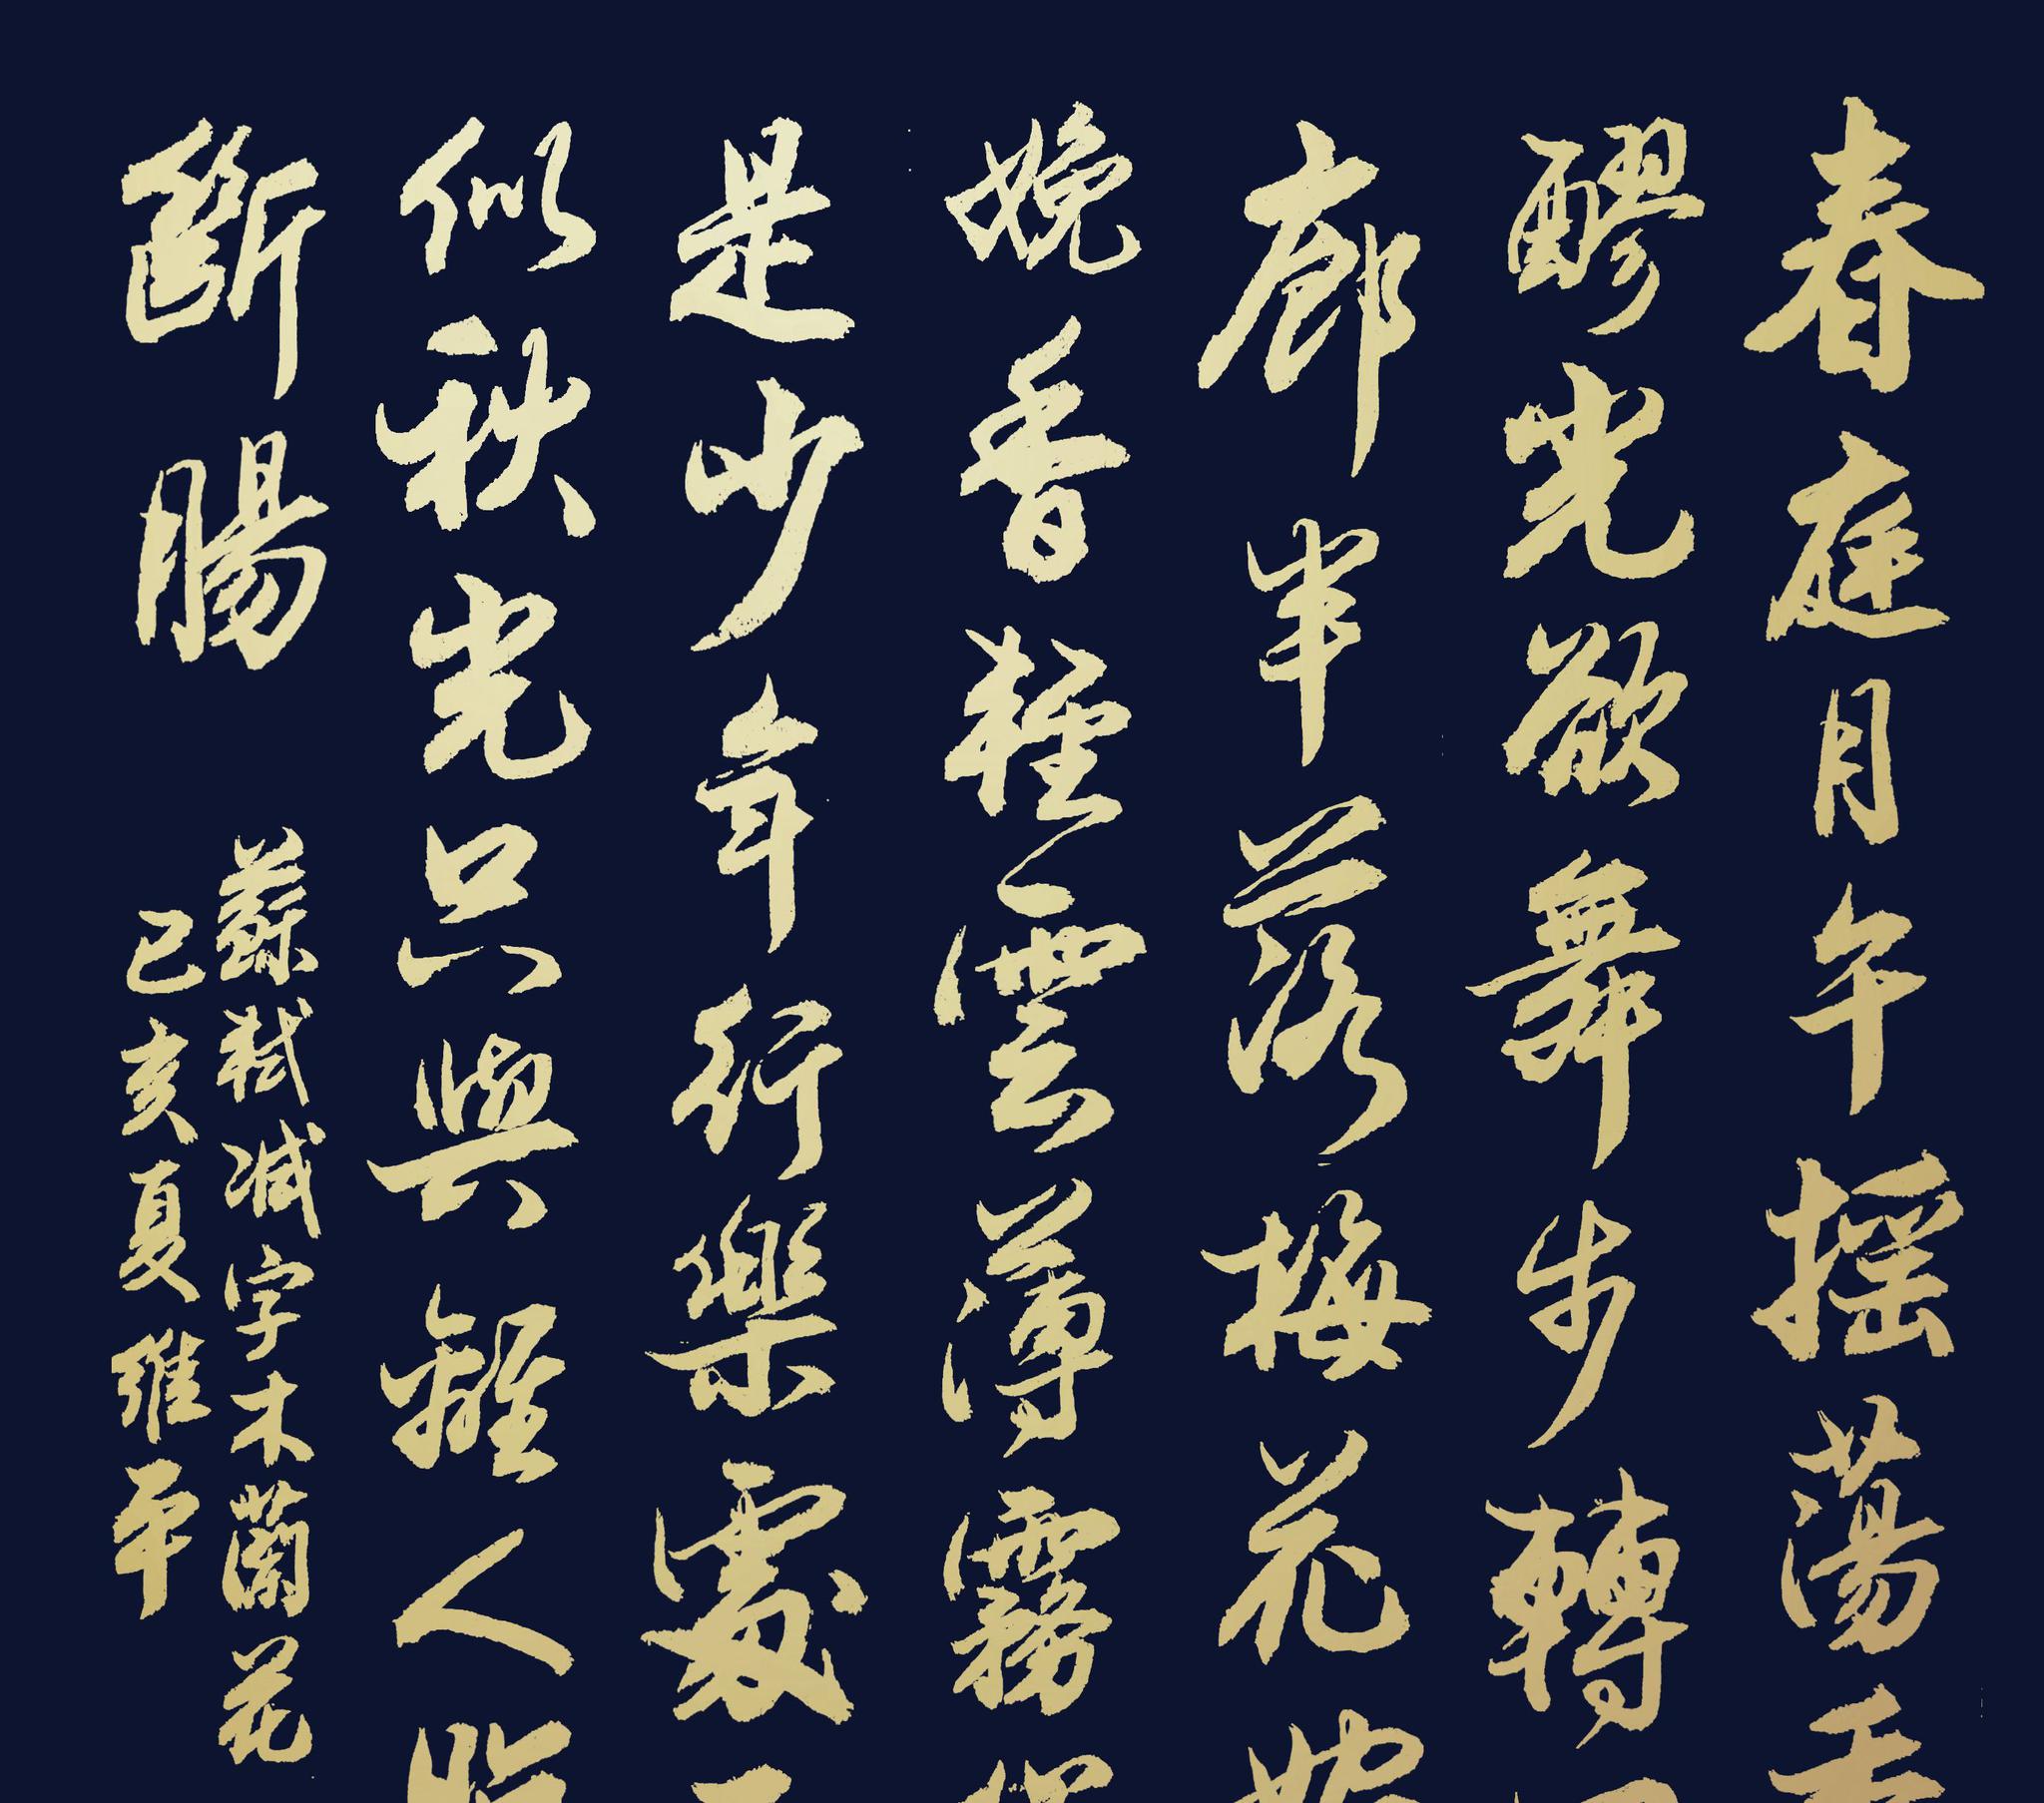 春庭月午摇蕩香
醪光欲舞步轉
廊半落梅花
婉香輕雲薄霧
是少年行樂處
似秋光只與離人照
斷腸
蘇軾減字木蘭花
己亥夏維平